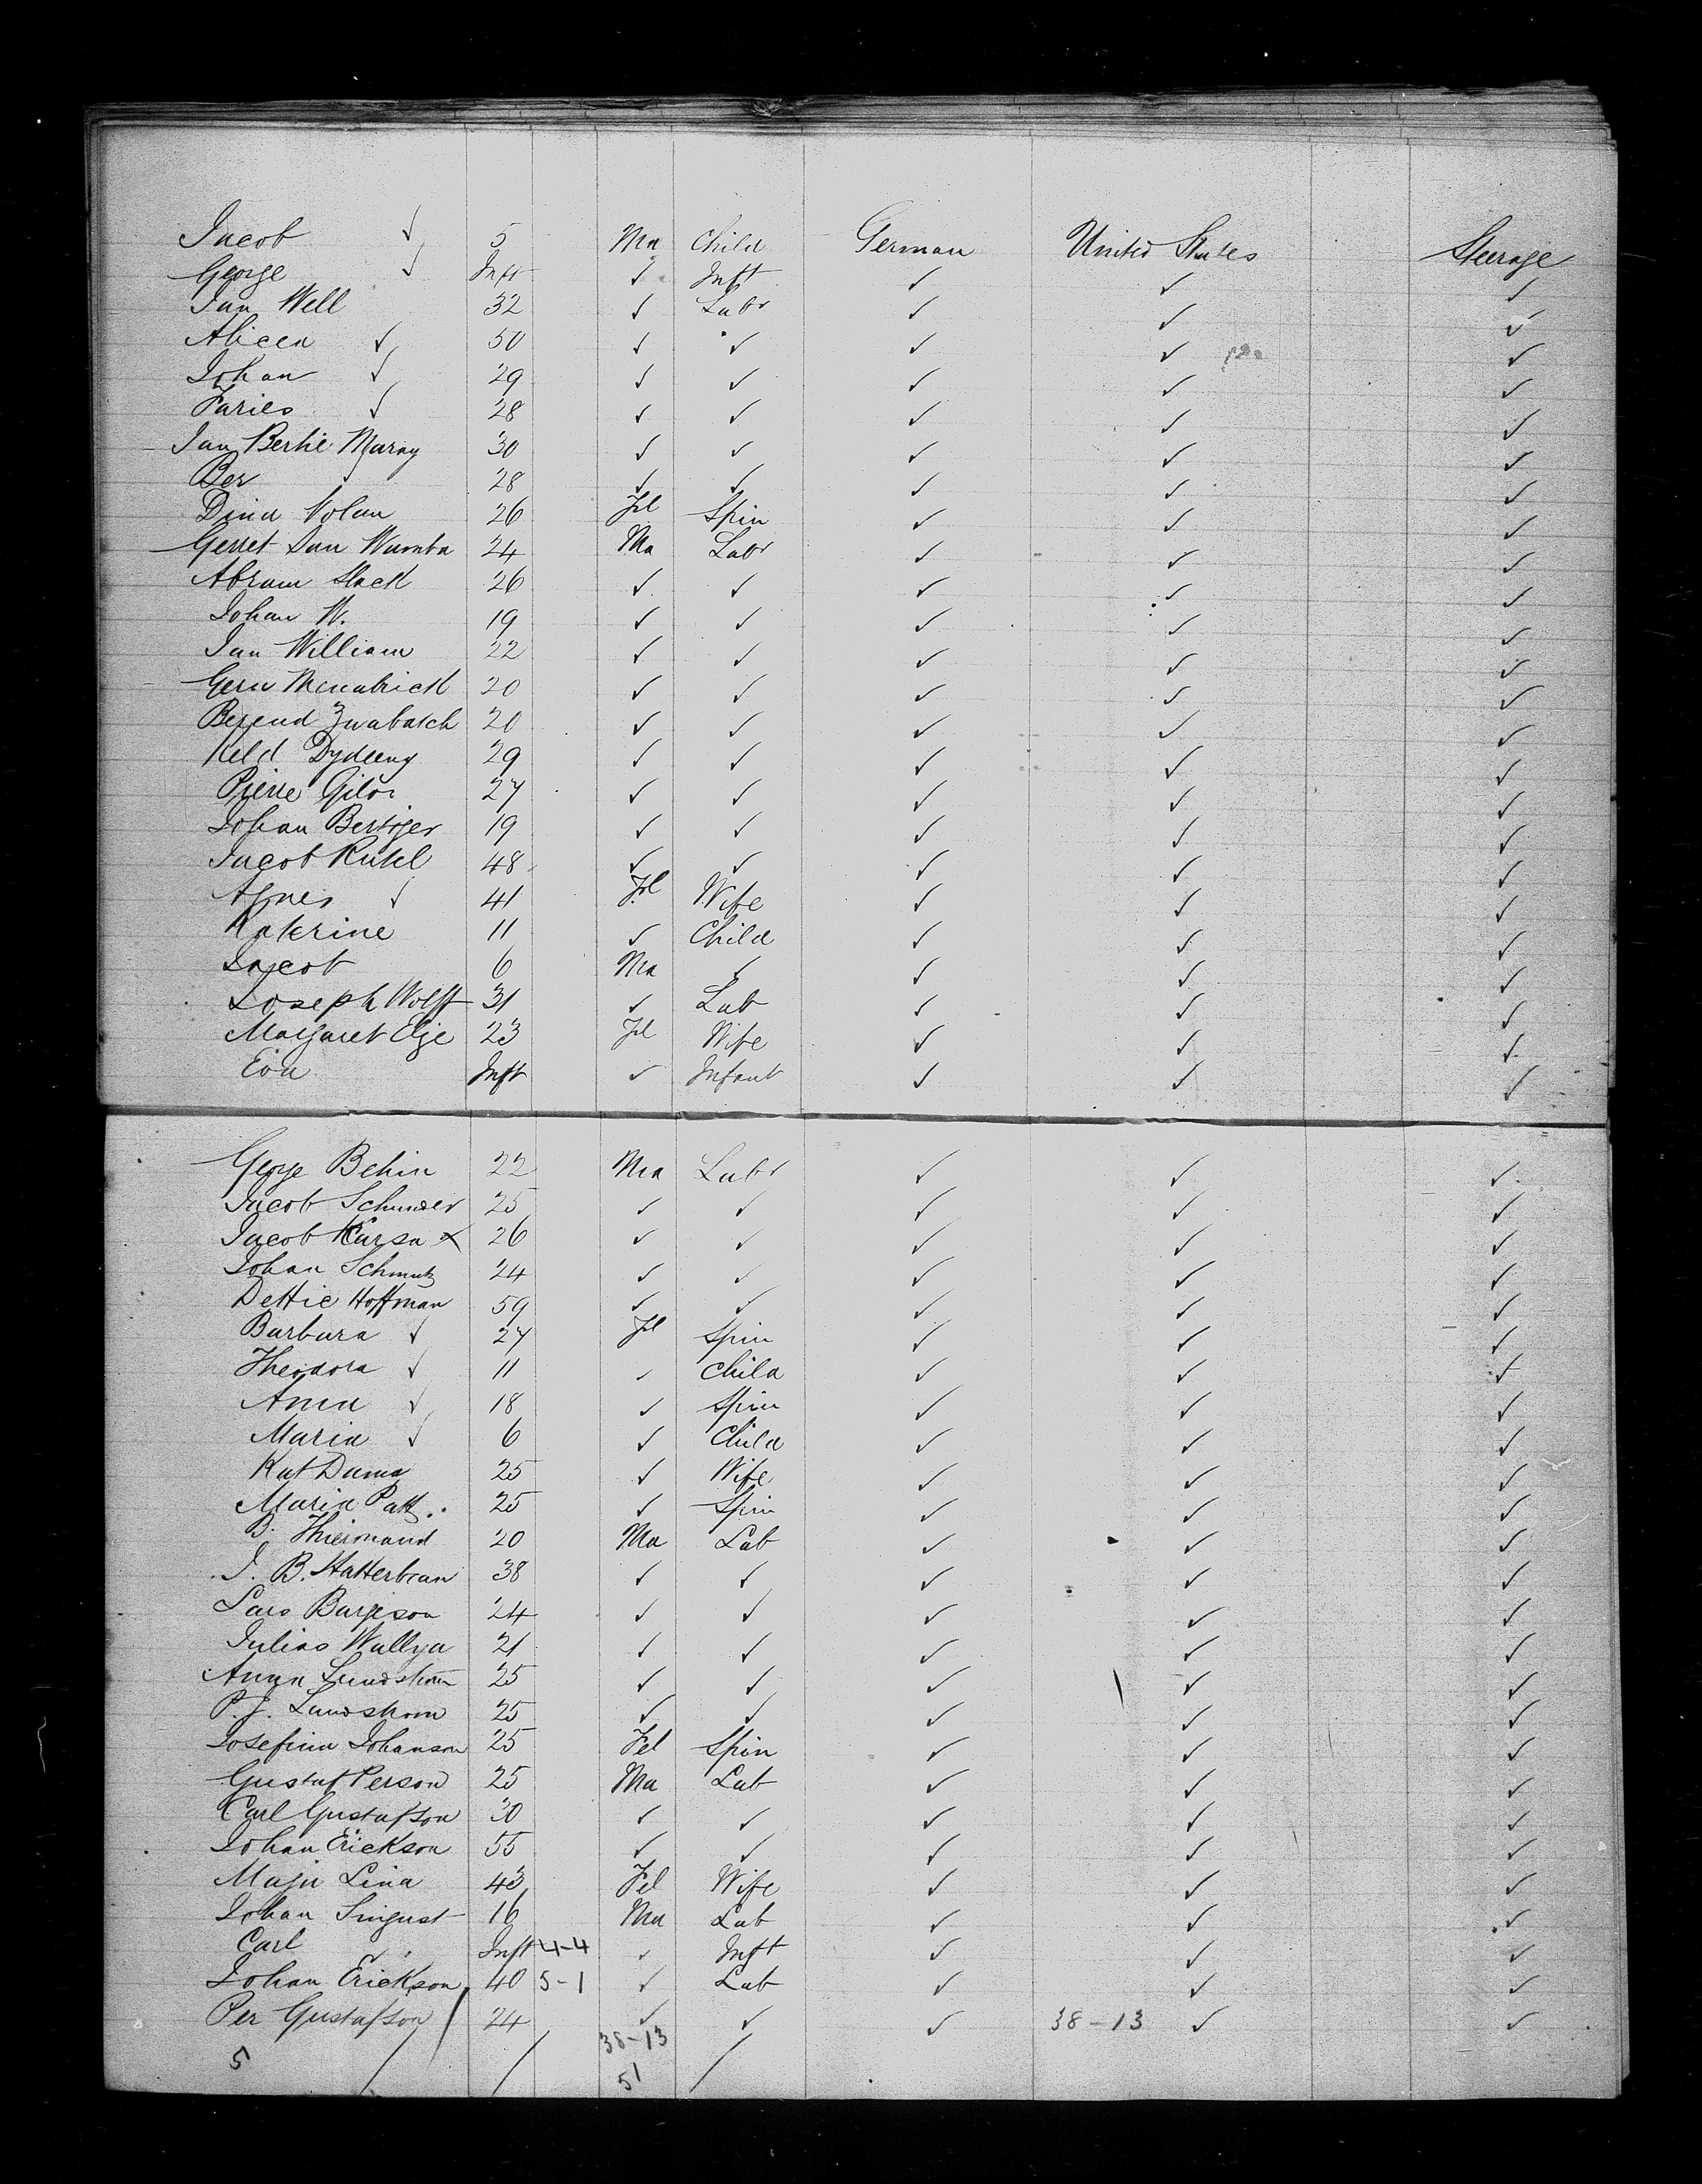 Jacob ✓ 5 Ma Child German United States Steerage
George ✓ Inft ✓ Inft ✓ ✓ ✓
Jan Well 32 ✓ Labr ✓ ✓ ✓
Alicea ✓ 50 ✓ ✓ ✓ ✓ ✓
Johan ✓ 29 ✓ ✓ ✓ ✓ ✓
Faries ✓ 28 ✓ ✓ ✓ ✓ ✓
Jan Bertie Maray 30 ✓ ✓ ✓ ✓ ✓
Ber ✓ 28 ✓ ✓ ✓ ✓ ✓
Dina Nolan 26 Fel Spin ✓ ✓ ✓
Gerret Van Wamba 24 Ma Labr ✓ ✓ ✓
Abram Slack 26 ✓ ✓ ✓ ✓ ✓
Johan W. 19 ✓ ✓ ✓ ✓ ✓
Jan William 22 ✓ ✓ ✓ ✓ ✓
Geru 20 ✓ ✓ ✓ ✓ ✓
Berend Zwabatch 20 ✓ ✓ ✓ ✓ ✓
Keld 29 ✓ ✓ ✓ ✓ ✓
Pierre Gilor 27 ✓ ✓ ✓ ✓ ✓
Johan 19 ✓ ✓ ✓ ✓ ✓
Jacob Rukel 48 ✓ ✓ ✓ ✓ ✓
Agnes ✓ 41 Fel Wife ✓ ✓ ✓
Katerine 11 ✓ Child ✓ ✓ ✓
Jacob 6 Ma ✓ ✓ ✓ ✓
Joseph Wolff 31 ✓ Lab ✓ ✓ ✓
Margaret Elje 23 Fel Wife ✓ ✓ ✓
Eva Inft ✓ Infant ✓ ✓ ✓
George Behin 22 Ma Labr ✓ ✓ ✓
Jacob Schunder 25 ✓ ✓ ✓ ✓ ✓
Jacob Karsa x 26 ✓ ✓ ✓ ✓ ✓
Johan Schmutz 24 ✓ ✓ ✓ ✓ ✓
Dettie Hoffman 59 ✓ ✓ ✓ ✓ ✓
Barbara ✓ 27 Fel Spin ✓ ✓ ✓
Theodora ✓ 11 ✓ Child ✓ ✓ ✓
Anna ✓ 18 ✓ Spin ✓ ✓ ✓
Maria ✓ 6 ✓ Child ✓ ✓ ✓
Kat Duma 25 ✓ Wife ✓ ✓ ✓
Maria Patt. 25 ✓ Spin ✓ ✓ ✓
B. Thiermand 20 Ma Lab ✓ ✓ ✓
J. B. Hatterbran 38 ✓ ✓ ✓ ✓ ✓
Lars Bargeson 24 ✓ ✓ ✓ ✓ ✓
Julias Wallya 21 ✓ ✓ ✓ ✓ ✓
Anan Lundstrom 25 ✓ ✓ ✓ ✓ ✓
P. J. Lundstrom 25 ✓ ✓ ✓ ✓ ✓
Josefina Johanson 25 Fel Spin ✓ ✓ ✓
Gustaf Person 25 Ma Lab ✓ ✓ ✓
Carl Gustafson 30 ✓ ✓ ✓ ✓ ✓
Johan Erickson 55 ✓ ✓ ✓ ✓ ✓
Maja Lina 43 Fel Wife ✓ ✓ ✓
Johan Singust 16 Ma Lab ✓ ✓ ✓
Carl Inft 4-4 ✓ Inft ✓ ✓ ✓
Johan Erickson 40 5-1 ✓ Lab ✓ ✓ ✓
Per Gustafson 24 ✓ ✓ ✓ 38-13 ✓ ✓
5 38-13
51